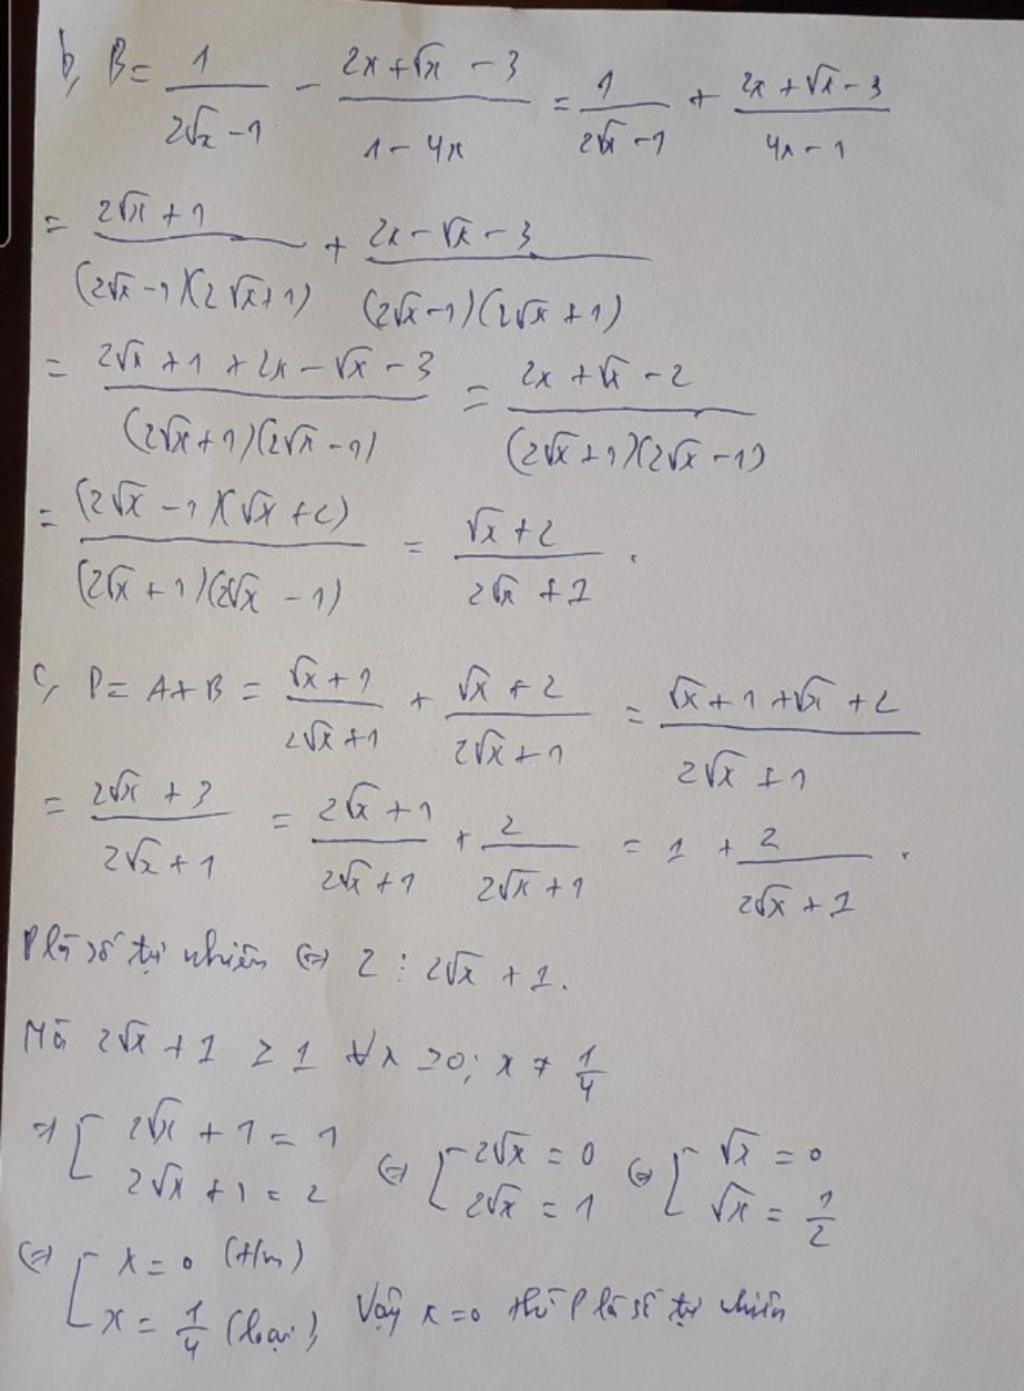 b, B = \frac{1}{2\sqrt{x} - 1} - \frac{2x + \sqrt{x} - 3}{1 - 4x} = \frac{1}{2\sqrt{x} - 1} + \frac{2x + \sqrt{x} - 3}{4x - 1}
= \frac{2\sqrt{x} + 1}{(2\sqrt{x} - 1)(2\sqrt{x} + 1)} + \frac{2x - \sqrt{x} - 3}{(2\sqrt{x} - 1)(2\sqrt{x} + 1)}
= \frac{2\sqrt{x} + 1 + 2x - \sqrt{x} - 3}{(2\sqrt{x} + 1)(2\sqrt{x} - 1)} = \frac{2x + \sqrt{x} - 2}{(2\sqrt{x} + 1)(2\sqrt{x} - 1)}
= \frac{(2\sqrt{x} - 1)(\sqrt{x} + 2)}{(2\sqrt{x} + 1)(2\sqrt{x} - 1)} = \frac{\sqrt{x} + 2}{2\sqrt{x} + 1}.
c, P = A + B = \frac{\sqrt{x} + 1}{2\sqrt{x} + 1} + \frac{\sqrt{x} + 2}{2\sqrt{x} + 1} = \frac{\sqrt{x} + 1 + \sqrt{x} + 2}{2\sqrt{x} + 1}
= \frac{2\sqrt{x} + 3}{2\sqrt{x} + 1} = \frac{2\sqrt{x} + 1}{2\sqrt{x} + 1} + \frac{2}{2\sqrt{x} + 1} = 1 + \frac{2}{2\sqrt{x} + 1}.
P là số tự nhiên ⇔ 2 ⋮ 2√x + 1.
Mà 2√x + 1 ≥ 1 ∀x ≥ 0; x ≠ \frac{1}{4}
⇒ [ 2√x + 1 = 1 ; 2√x + 1 = 2 ⇔ [ 2√x = 0 ; 2√x = 1 ⇔ [ √x = 0 ; √x = \frac{1}{2}
⇔ [ x = 0 (t/m) ; x = \frac{1}{4} (loại) Vậy x = 0 thì P là số tự nhiên